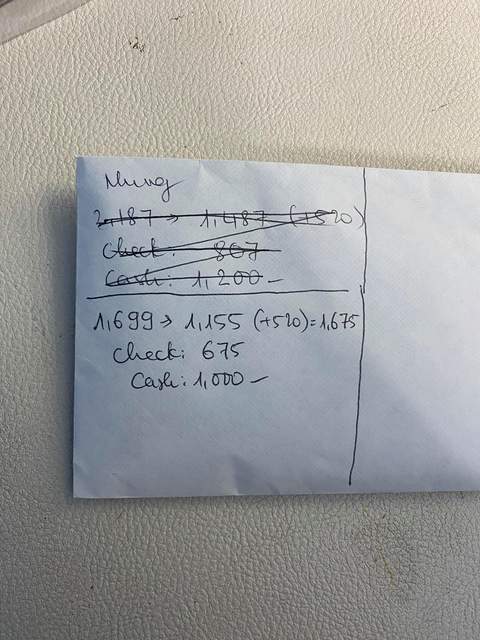 2,187 → 1,487 (+520)
Check: 807
Cash: 1,200 –
1,699 → 1,155 (+520) = 1,675
Check: 675
Cash: 1,000 –